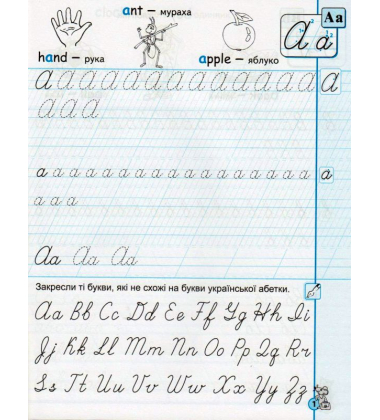 ant – мураха
Aa
hand – рука
apple – яблуко
A a
a a a a a a a a a a a a a a
a a a
a a a a a a a a a a a a a a a a a
a a a
Aa Aa Aa
Закресли ті букви, які не схожі на букви української абетки.
Aa Bb Cc Dd Ee Ff Gg Hh Ii
Jj Kk Ll Mm Nn Oo Pp Qq Rr
Ss Tt Uu Vv Ww Xx Yy Zz
1